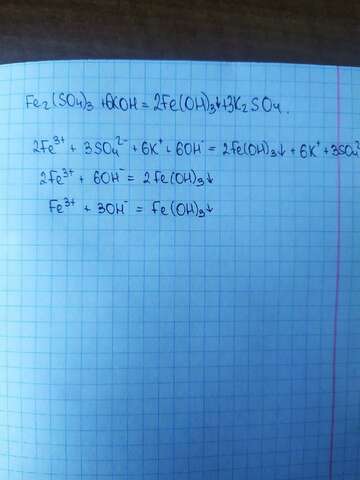 Fe₂(SO₄)₃ + 6KOH = 2Fe(OH)₃↓ + 3K₂SO₄.
2Fe³⁺ + 3SO₄²⁻ + 6K⁺ + 6OH⁻ = 2Fe(OH)₃↓ + 6K⁺ + 3SO₄²
2Fe³⁺ + 6OH⁻ = 2Fe(OH)₃↓
Fe³⁺ + 3OH⁻ = Fe(OH)₃↓